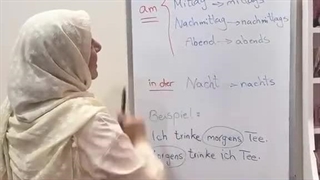 am Mittag → mittags
Nachmittag → nachmittags
Abend → abends
in der Nacht → nachts
Beispiel:
Ich trinke morgens Tee.
trinke ich Tee.